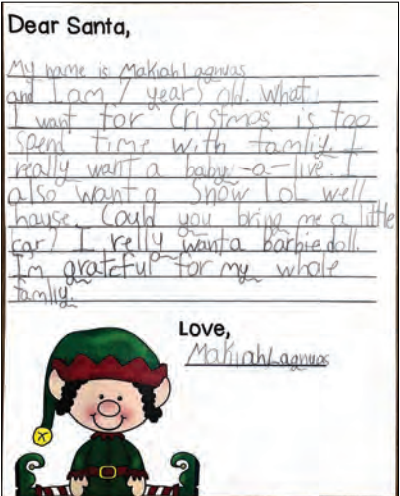 Dear Santa,
My name is Makiah Lagnuas
and I am 7 years old. What
I want for Cristmas is too
spend time with famliy. I
really want a baby-a-live. I
also want a Snow LoL well
hause. Could you bring me a little
car? I relly want a barbie doll.
Im grateful for my whole
famliy.
Love,
Makiah Lagnuas